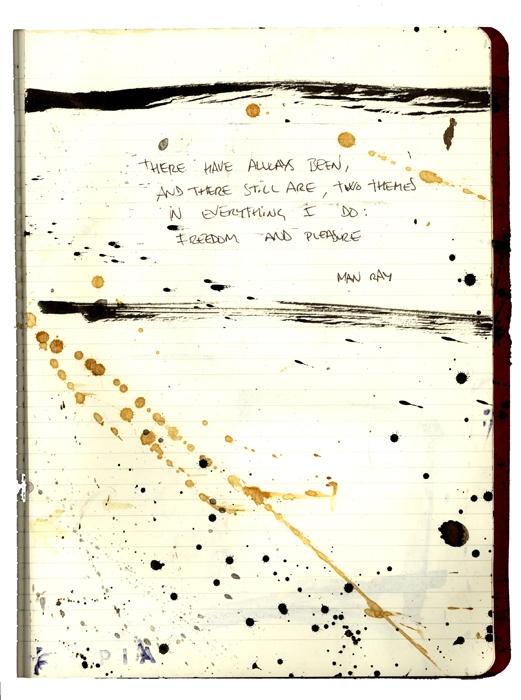 THERE HAVE ALWAYS BEEN,
AND THERE STILL ARE, TWO THEMES
IN EVERYTHING I DO:
FREEDOM AND PLEASURE
MAN RAY
PIA